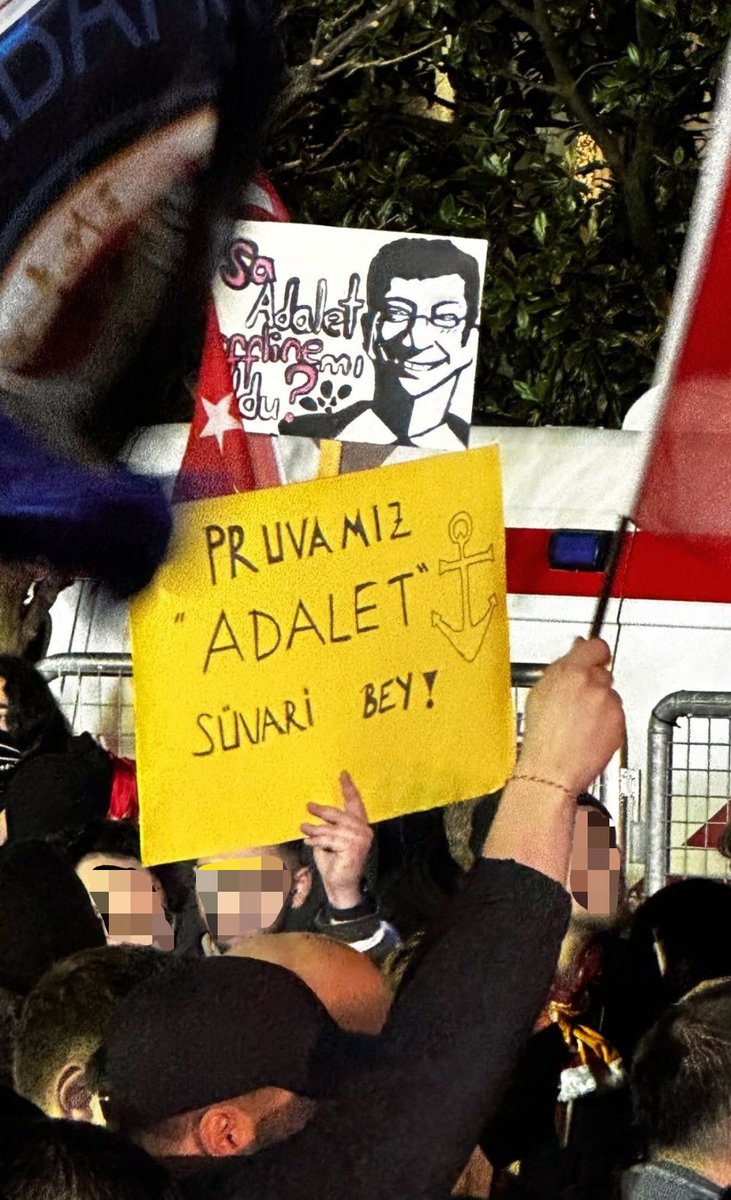 DAM
Sa
Adalet
offline mı
ldu?
PRUVAMIZ
"ADALET"
SÜVARİ BEY!